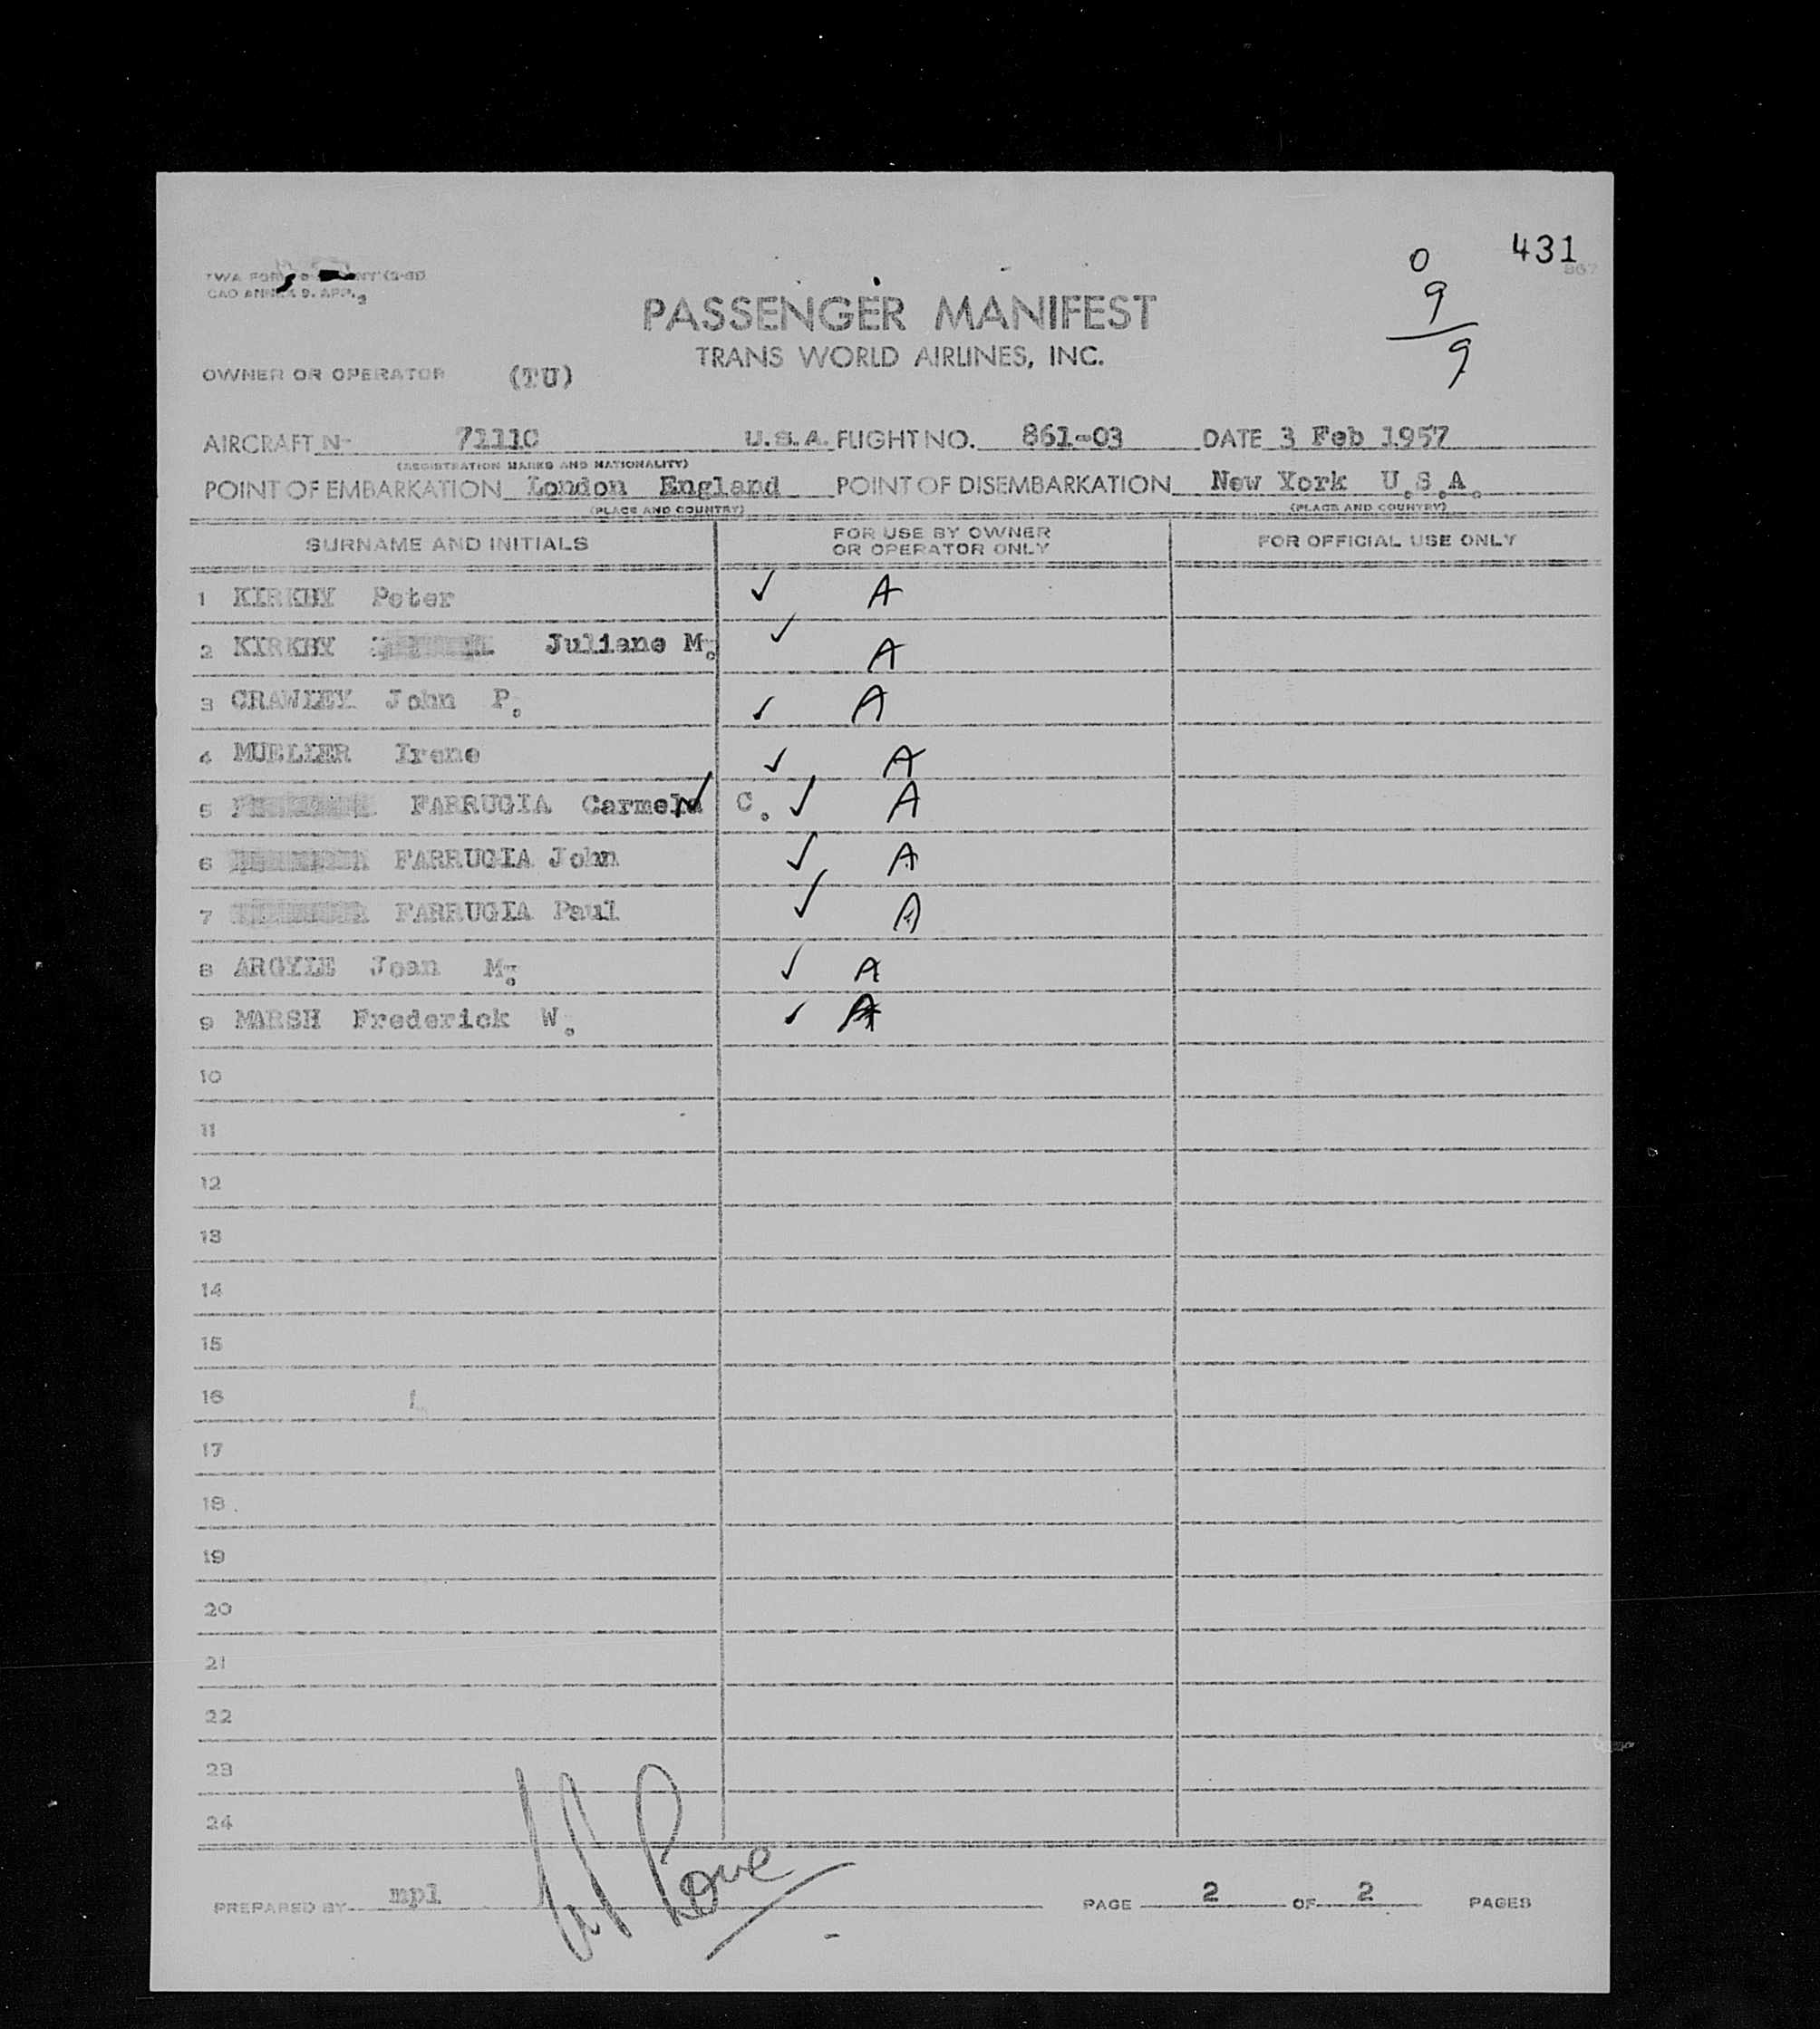 431
867
0
9
9
TWA FORM
PASSENGER MANIFEST
TRANS WORLD AIRLINES, INC.
OWNER OR OPERATOR (TU)
AIRCRAFT N- 7111C U.S.A. FLIGHT NO. 861-03 DATE 3 Feb 1957
(REGISTRATION MARKS AND NATIONALITY)
POINT OF EMBARKATION London England POINT OF DISEMBARKATION New York U.S.A.
(PLACE AND COUNTRY) (PLACE AND COUNTRY)
SURNAME AND INITIALS FOR USE BY OWNER OR OPERATOR ONLY FOR OFFICIAL USE ONLY
1 KIRKBY Peter ✓ A
2 KIRKBY Juliane M. ✓ A
3 CRAWLEY John P. ✓ A
4 MUELLER Irene ✓ A
5 FARRUGIA Carmela C. ✓ A
6 FARRUGIA John ✓ A
7 FARRUGIA Paul ✓ A
8 ARGYLE Joan M. ✓ A
9 MARSH Frederick W. ✓ A
10
11
12
13
14
15
16
17
18
19
20
21
22
23
24
PREPARED BY mpl PAGE 2 OF 2 PAGES